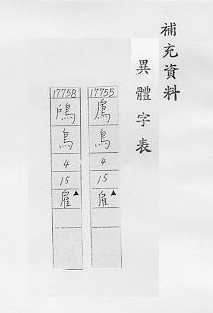 補充資料
異體字表
17755
鳸
鳥
4
15
雇▲
17758
鳥
4
15
雇▲